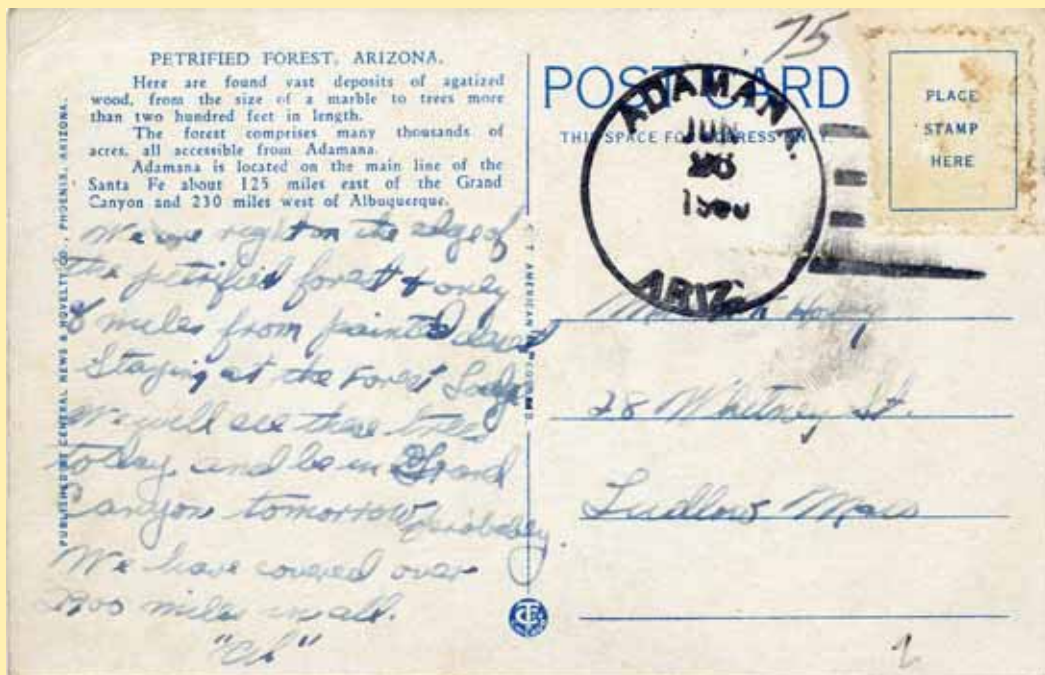 75
PETRIFIED FOREST, ARIZONA.
Here are found vast deposits of agatized
wood, from the size of a marble to trees more
than two hundred feet in length.
The forest comprises many thousands of
acres, all accessible from Adamana.
Adamana is located on the main line of the
Santa Fe about 125 miles east of the Grand
Canyon and 230 miles west of Albuquerque.
PUBLISHED BY CENTRAL NEWS & NOVELTY CO., PHOENIX, ARIZONA.
We are right on the edge of
the petrified forest & only
miles from painted desert
Staying at the Forest Lodge
We will see these trees
today and be in Grand
Canyon tomorrow, probabley
We have covered over
2900 miles in all.
C. T. AMERICAN
POST CARD
THIS SPACE FOR ADDRESS ONLY.
ADAMANA
JUN
ARIZ.
PLACE
STAMP
HERE
28 Whitney St.
Ludlow Mass